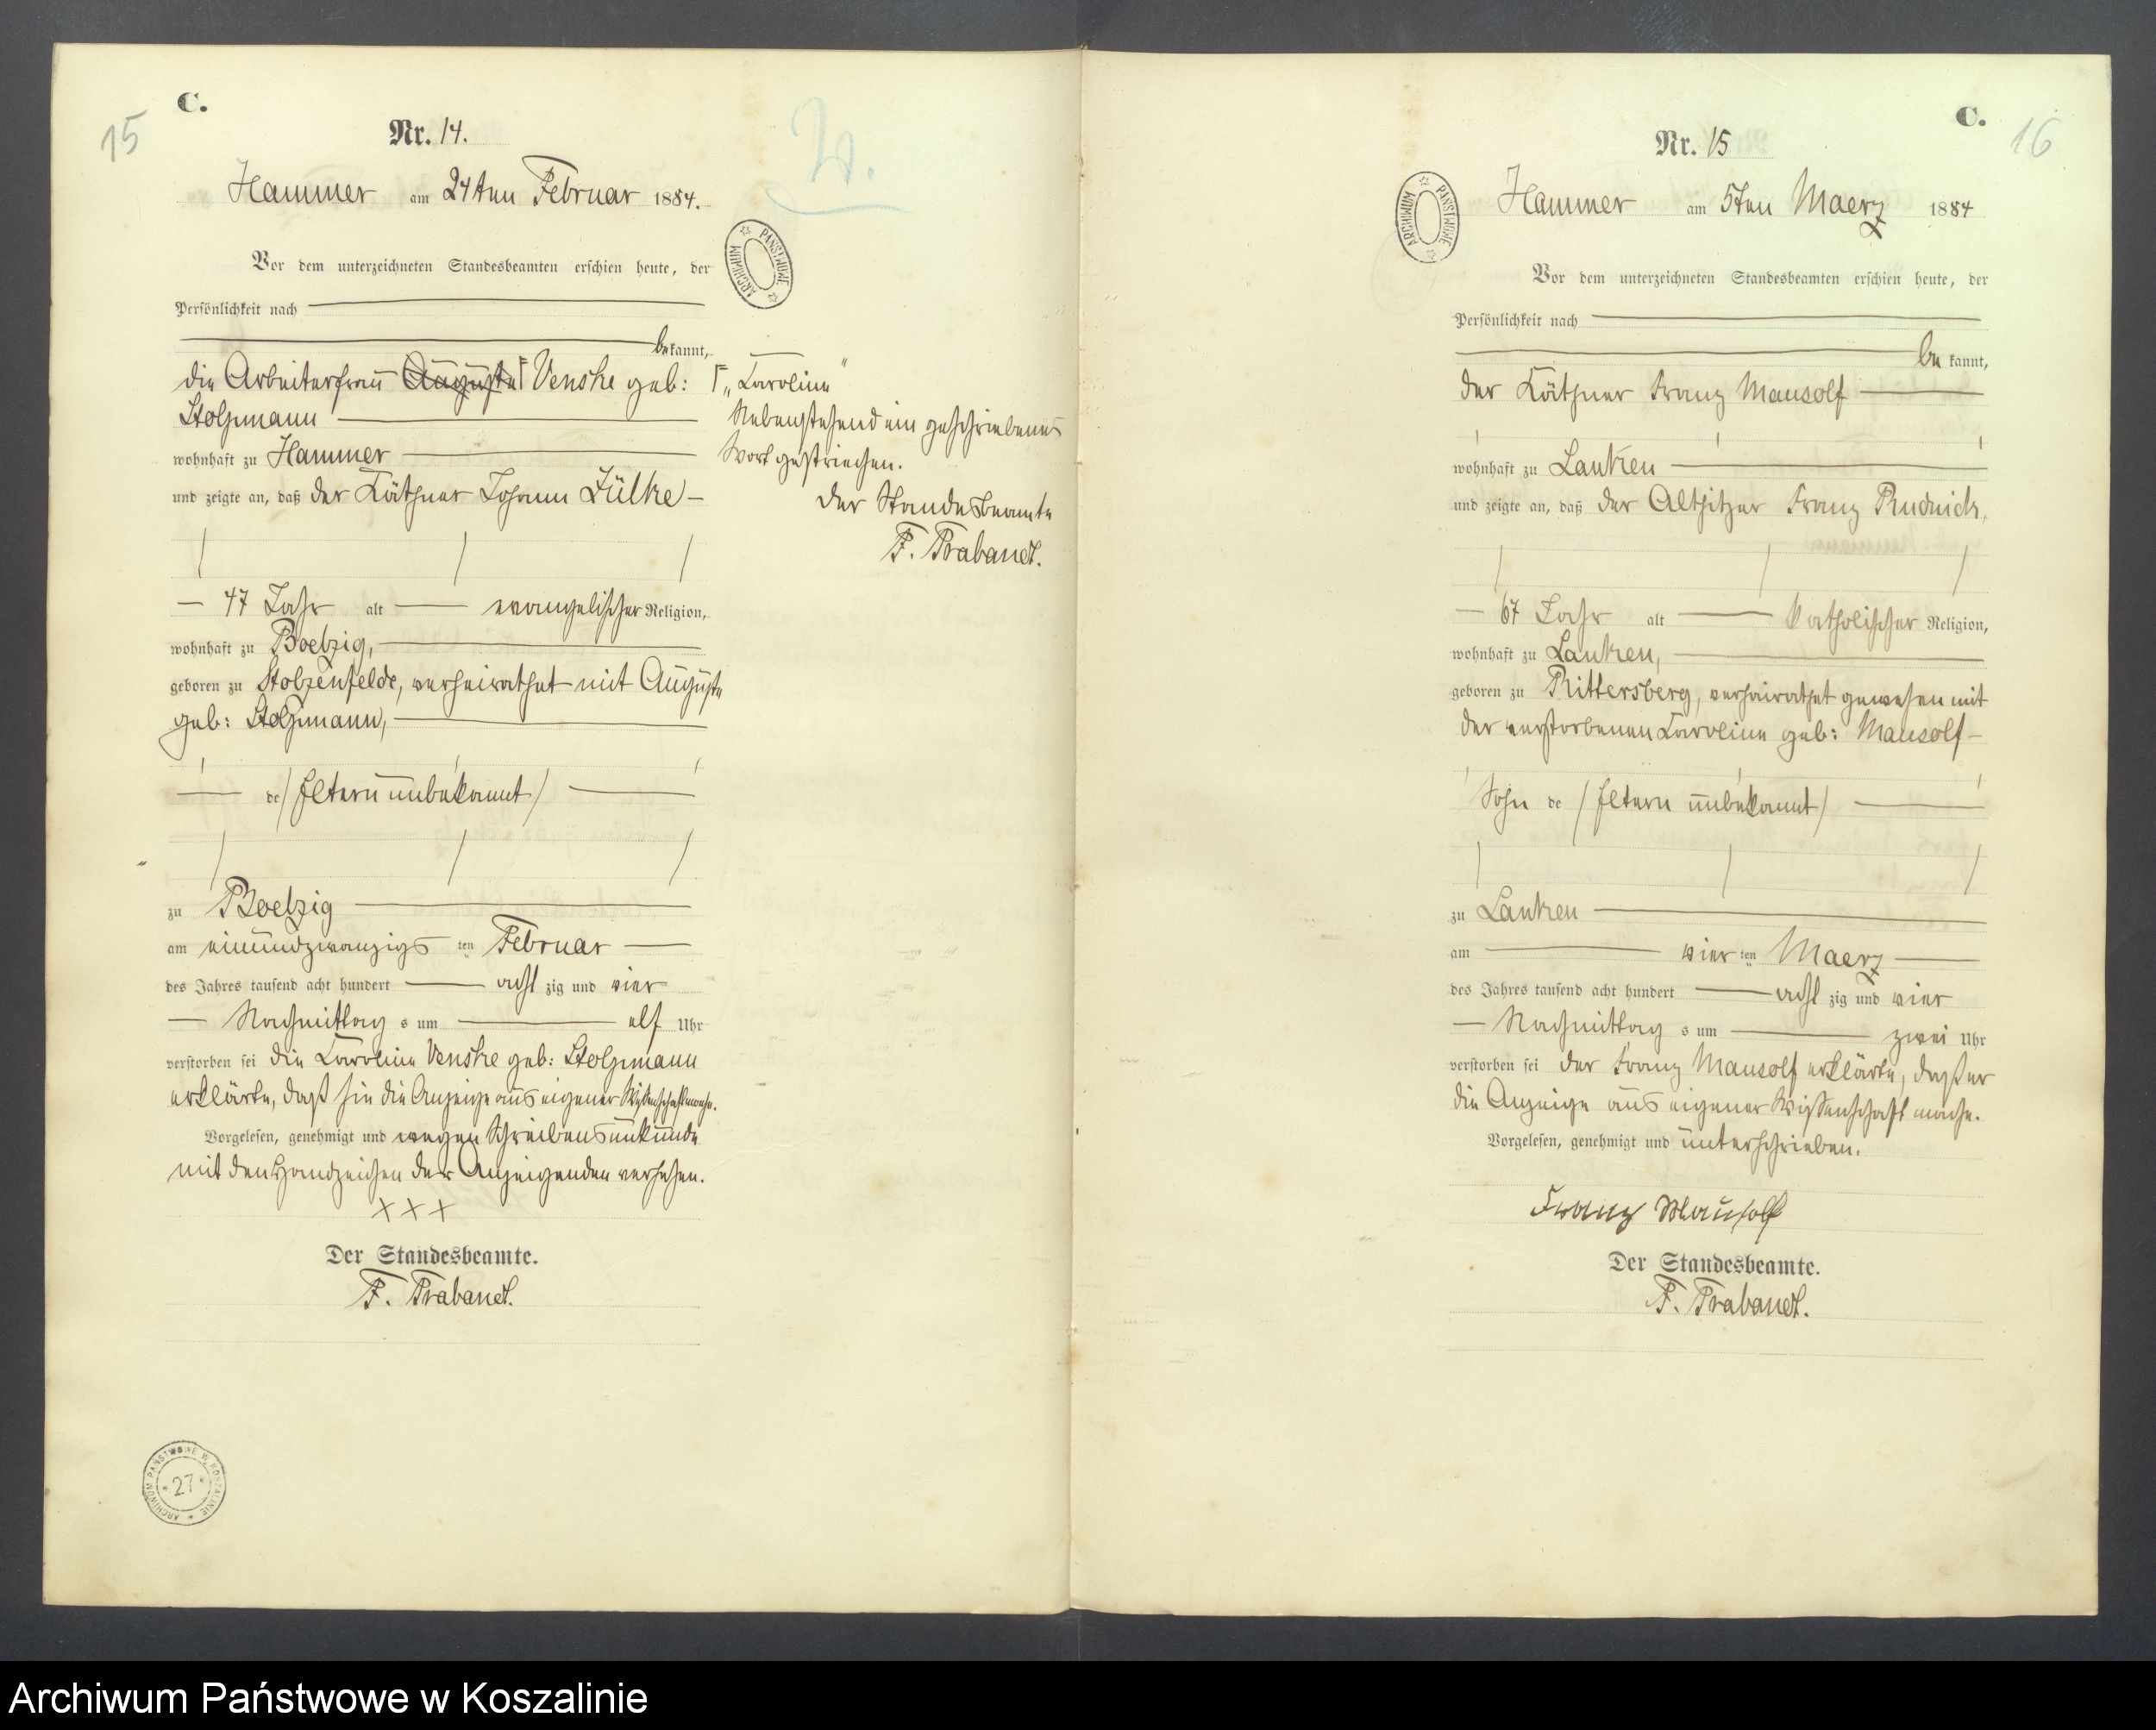 C.
15
Nr. 14.
Hammer am 24ten Februar 1884.
Vor dem unterzeichneten Standesbeamten erschien heute, der
Persönlichkeit nach
bekannt,
die Arbeiterfrau Auguste Venske geb:
Stolzmann
wohnhaft zu Hammer
und zeigte an, daß der Käthner Johann Zülke
47 Jahr alt evangelischer Religion,
wohnhaft zu Boetzig,
geboren zu Stolzenfelde, verheirathet mit Auguste
geb: Stolzmann,
de (Eltern unbekannt)
zu Boetzig
am einundzwanzigsten Februar
des Jahres tausend acht hundert achtzig und vier
Nachmittags um elf Uhr
verstorben sei die Caroline Venske geb: Stolzmann
erklärte, daß sie die Anzeige aus eigener Wissenschaft mache.
Vorgelesen, genehmigt und wegen Schreibensunkunde
mit den Handzeichen der Anzeigenden versehen.
+++
Der Standesbeamte.
F. Trabandt.
ARCHIWUM PAŃSTWOWE W KOSZALINIE
27
ARCHIWUM PAŃSTWOWE
„Caroline"
Nebenstehend ein geschriebenes
Wort gestrichen.
Der Standesbeamte
F. Trabandt.
C.
16
Nr. 15
ARCHIWUM PAŃSTWOWE
Hammer am 5ten Maerz 1884
Vor dem unterzeichneten Standesbeamten erschien heute, der
Persönlichkeit nach
bekannt,
der Käthner Franz Mausolf
wohnhaft zu Lanken
und zeigte an, daß der Altsitzer Franz Rudnick,
67 Jahr alt katholischer Religion,
wohnhaft zu Lanken,
geboren zu Rittersberg, verheirathet gewesen mit
der verstorbenen Caroline geb: Mausolf
Sohn de (Eltern unbekannt)
zu Lanken
am vierten Maerz
des Jahres tausend acht hundert achtzig und vier
Nachmittags um zwei Uhr
verstorben sei der Franz Mausolf erklärte, daß er
die Anzeige aus eigener Wissenschaft mache.
Vorgelesen, genehmigt und unterschrieben.
Franz Mausolf
Der Standesbeamte.
F. Trabandt.
Archiwum Państwowe w Koszalinie